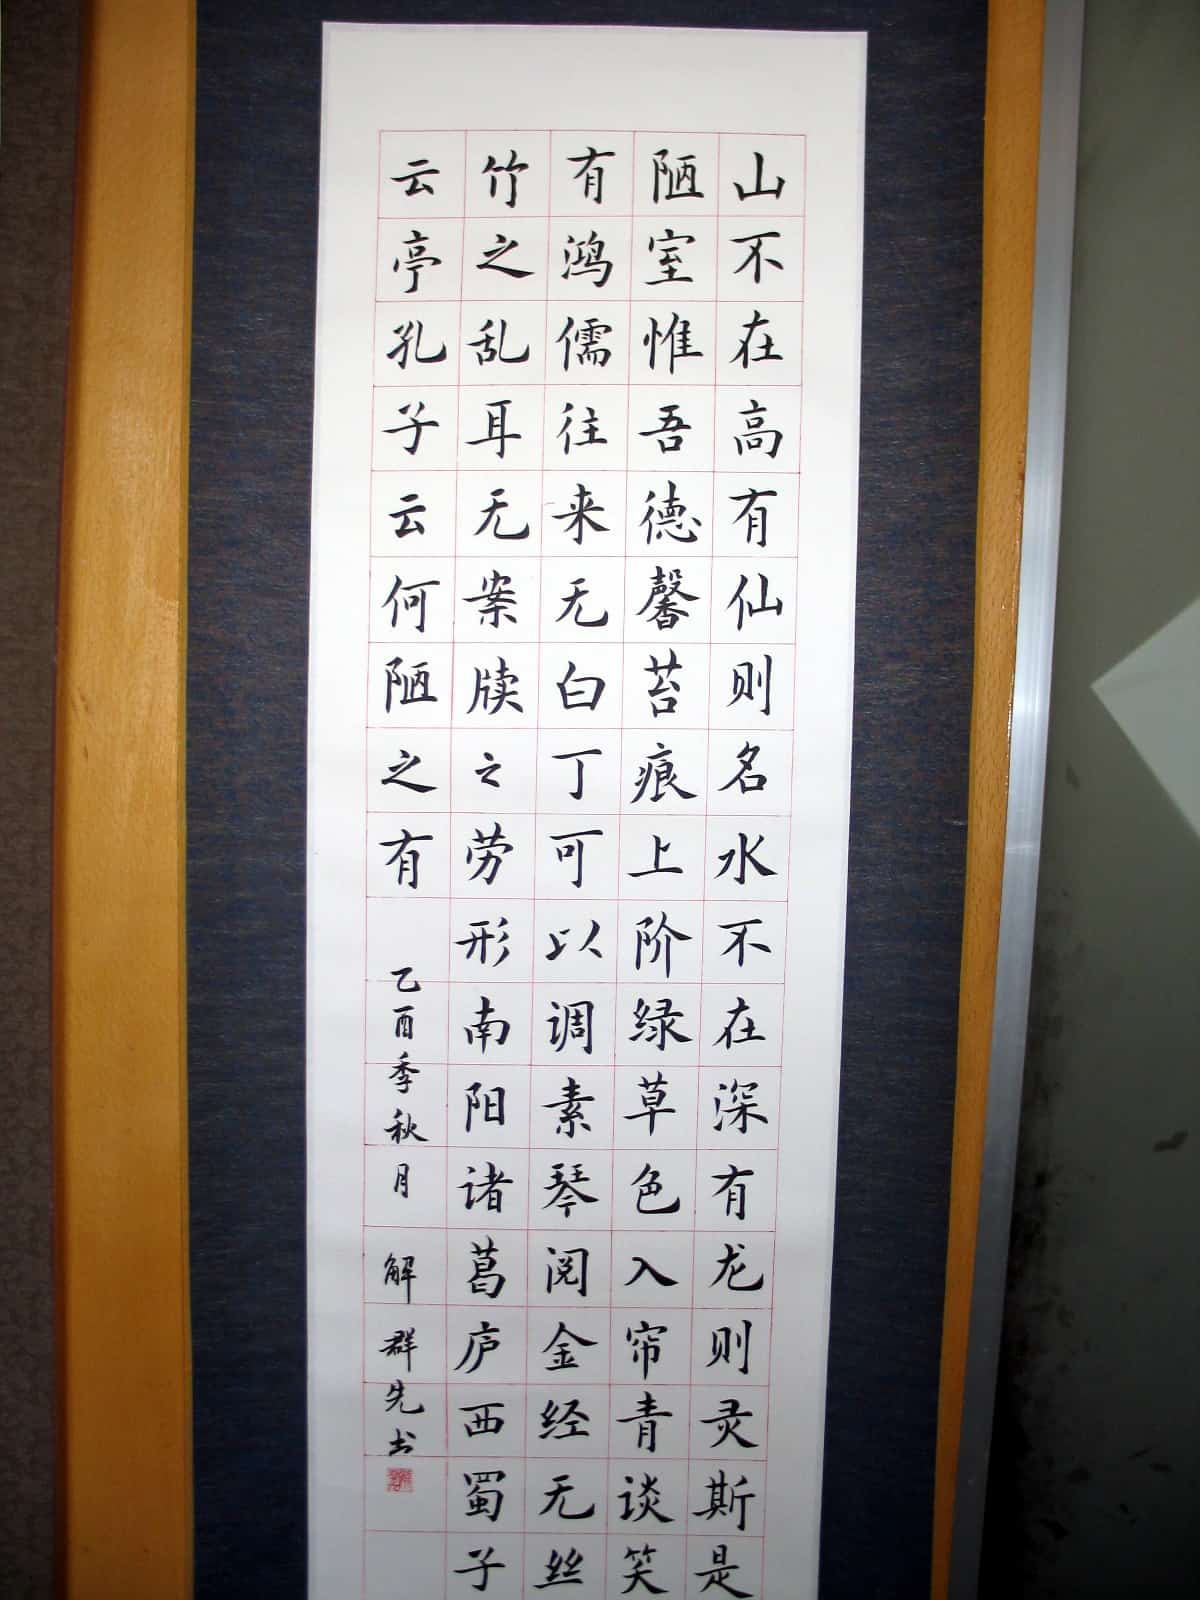 山不在高有仙则名水不在深有龙则灵斯是
陋室惟吾德馨苔痕上阶绿草色入帘青谈笑
有鸿儒往来无白丁可以调素琴阅金经无丝
竹之乱耳无案牍之劳形南阳诸葛庐西蜀子
云亭孔子云何陋之有
乙酉季秋月 解群先书